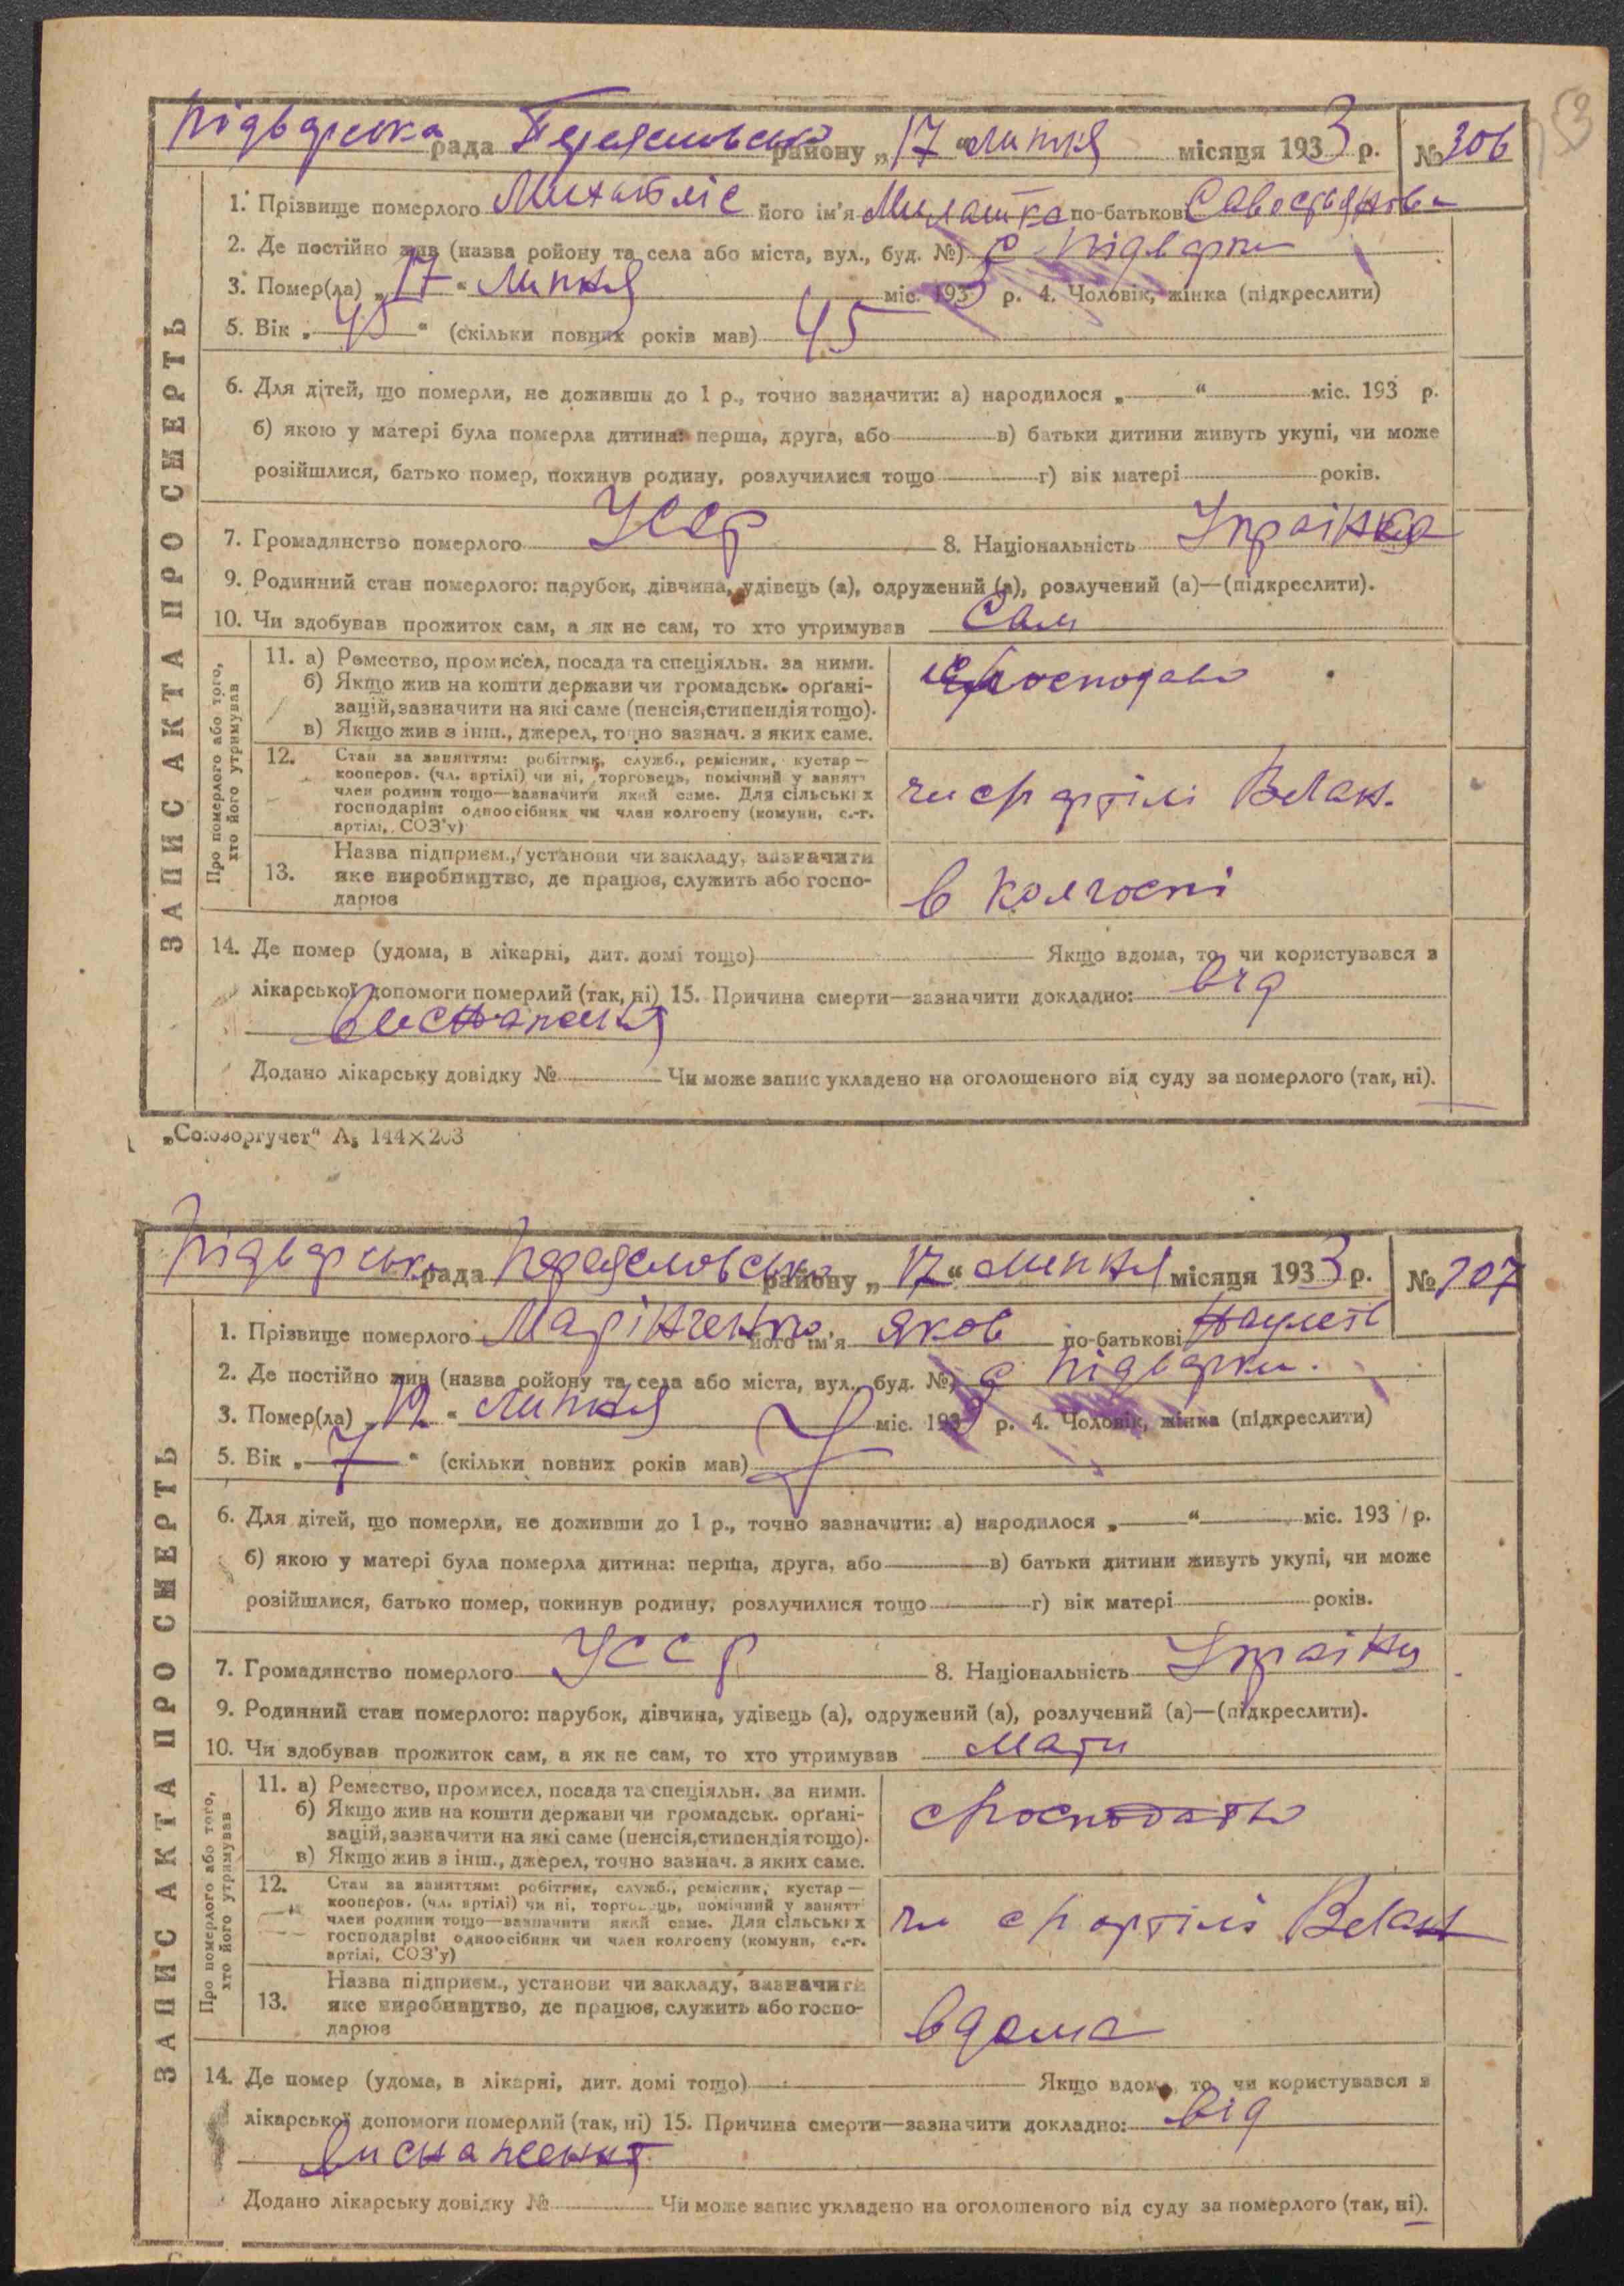 53
Підварська рада Переяславсько району „17“ липня місяця 1933 р. № 306
ЗАПИС АКТА ПРО СМЕРТЬ
1. Прізвище померлого його ім'я по-батькові
2. Де постійно жив (назва ройону та села або міста, вул., буд. №) с Підварки
3. Помер(ла) „17“ липня міс. 1933 р. 4. Чоловік, жінка (підкреслити)
5. Вік „45“ (скільки повних років мав) 45
6. Для дітей, що померли, не доживши до 1 р., точно зазначити: а) народилося „—“ міс. 193 р.
б) якою у матері була померла дитина: перша, друга, або — в) батьки дитини живуть укупі, чи може
розійшлися, батько помер, покинув родину, розлучилися тощо — г) вік матері — років.
7. Громадянство померлого УССР 8. Національність Українка
9. Родинний стан померлого: парубок, дівчина, удівець (а), одружений (а), розлучений (а)—(підкреслити).
10. Чи здобував прожиток сам, а як не сам, то хто утримував Сам
Про померлого або того, хто його утримував
11. а) Ремество, промисел, посада та спеціяльн. за ними.
б) Якщо жив на кошти держави чи громадськ. орґані-
зацій, зазначити на які саме (пенсія, стипендія тощо).
в) Якщо жив з інш., джерел, точно зазнач. з яких саме.
12. Стан за заняттям: робітник, служб., ремісник, кустар —
кооперов. (чл. артілі) чи ні, торговець, помічний у занятт
член родини тощо—зазначити який саме. Для сільських
господарів: одноосібник чи член колгоспу (комуни, с.-г.
артілі, СОЗ'у)
артілі
13. Назва підприєм., установи чи закладу, зазначити
яке виробництво, де працює, служить або госпо-
дарює
в колгоспі
14. Де помер (удома, в лікарні, дит. домі тощо) Якщо вдома, то чи користувався з
лікарської допомоги померлий (так, ні) 15. Причина смерти—зазначити докладно: від
виснаження
Додано лікарську довідку № Чи може запис укладено на оголошеного від суду за померлого (так, ні).
„Союзоргучет“ А₅ 144×203
Підварська рада Переяславсько району „17“ липня місяця 1933 р. № 307
ЗАПИС АКТА ПРО СМЕРТЬ
1. Прізвище померлого Марінченко його ім'я Яков по-батькові
2. Де постійно жив (назва ройону та села або міста, вул., буд. №) с Підварки.
3. Помер(ла) „17“ липня міс. 1933 р. 4. Чоловік, жінка (підкреслити)
5. Вік „7“ (скільки повних років мав) 7
6. Для дітей, що померли, не доживши до 1 р., точно зазначити: а) народилося „—“ міс. 193 р.
б) якою у матері була померла дитина: перша, друга, або — в) батьки дитини живуть укупі, чи може
розійшлися, батько помер, покинув родину, розлучилися тощо — г) вік матері — років.
7. Громадянство померлого УССР 8. Національність
9. Родинний стан померлого: парубок, дівчина, удівець (а), одружений (а), розлучений (а)—(підкреслити).
10. Чи здобував прожиток сам, а як не сам, то хто утримував Мати
Про померлого або того, хто його утримував
11. а) Ремество, промисел, посада та спеціяльн. за ними.
б) Якщо жив на кошти держави чи громадськ. орґані-
зацій, зазначити на які саме (пенсія, стипендія тощо).
в) Якщо жив з інш., джерел, точно зазнач. з яких саме.
12. Стан за заняттям: робітник, служб., ремісник, кустар —
кооперов. (чл. артілі) чи ні, торговець, помічний у занятт
член родини тощо—зазначити який саме. Для сільських
господарів: одноосібник чи член колгоспу (комуни, с.-г.
артілі, СОЗ'у)
артілі
13. Назва підприєм., установи чи закладу, зазначити
яке виробництво, де працює, служить або госпо-
дарює
вдома
14. Де помер (удома, в лікарні, дит. домі тощо) Якщо вдома, то чи користувався з
лікарської допомоги померлий (так, ні) 15. Причина смерти—зазначити докладно: від
виснаження
Додано лікарську довідку № Чи може запис укладено на оголошеного від суду за померлого (так, ні).